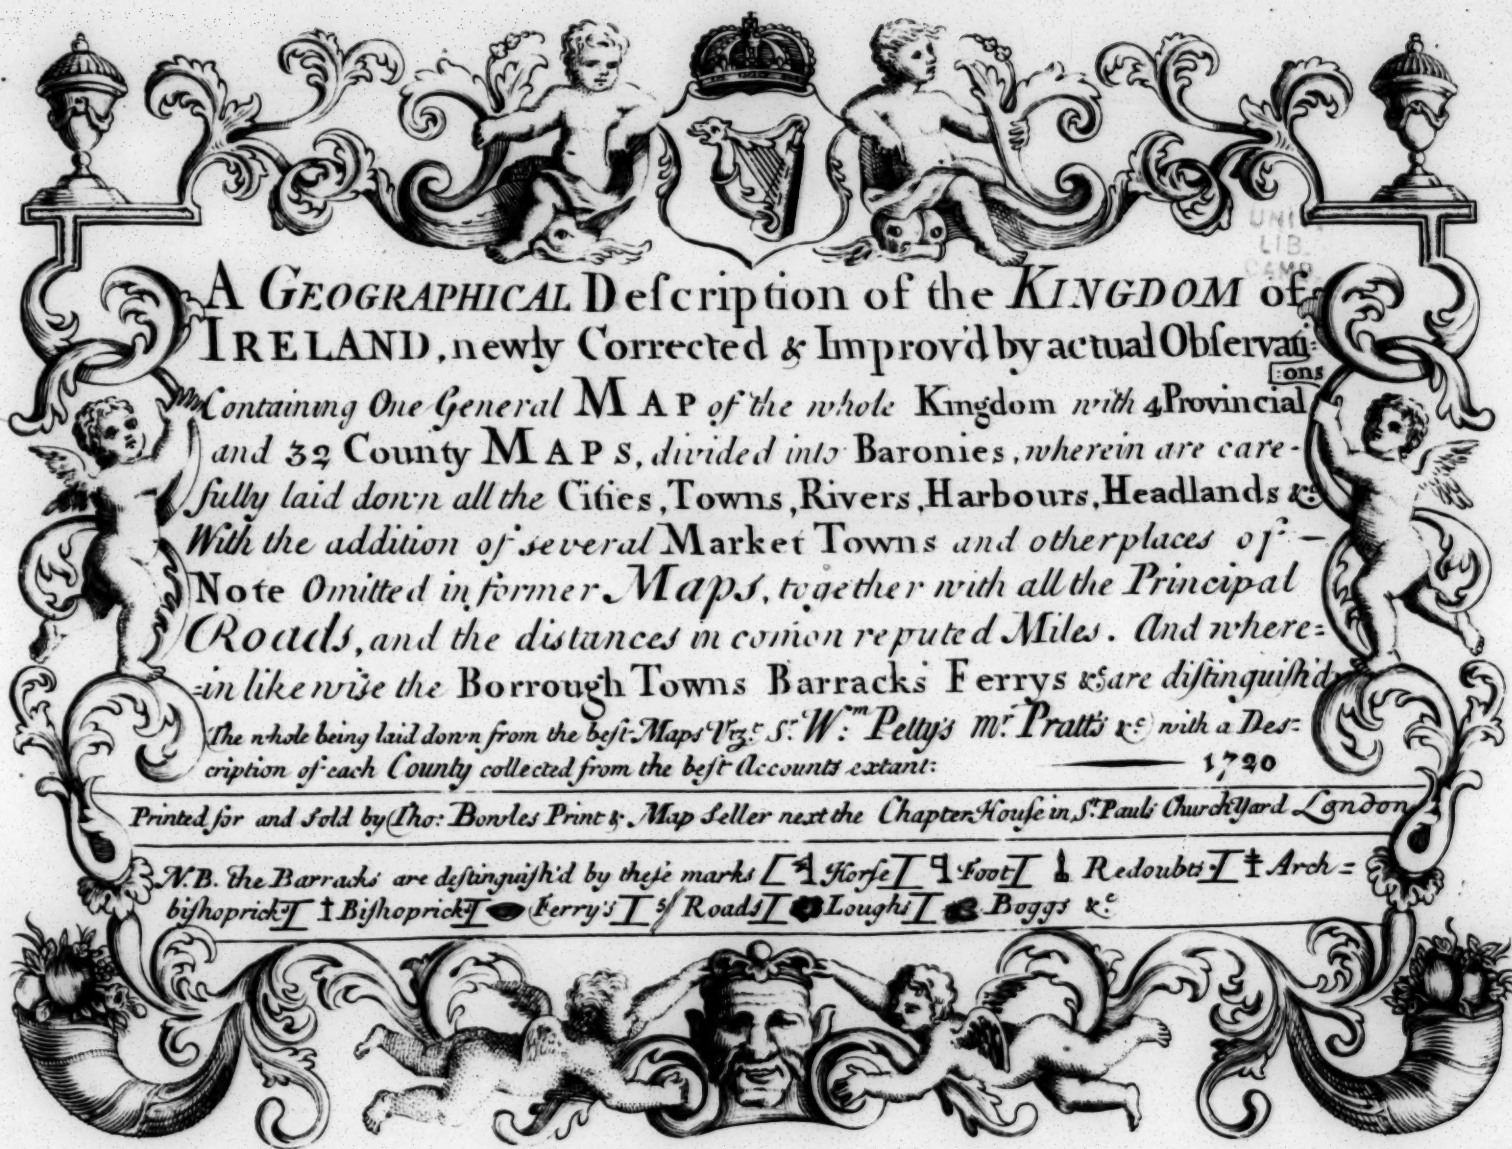 UNIV.
LIB.
CAMB.
A GEOGRAPHICAL Deſcription of the KINGDOM of
IRELAND, newly Corrected & Improv'd by actual Obſervati:
:ons
Containing One General MAP of the whole Kingdom with 4 Provincial
and 32 County MAPS, divided into Baronies, wherein are care-
fully laid down all the Cities, Towns, Rivers, Harbours, Headlands &c.
With the addition of several Market Towns and other places of —
Note Omitted in former Maps, together with all the Principal
Roads, and the distances in comon reputed Miles. And where=
=in likewise the Borrough Towns Barracks Ferrys &c. are diſtinguiſh'd,
The whole being laid down from the beſt Maps Vizt. Sr. Wm. Petty's mr. Pratt's &c) with a Des=
cription of each County collected from the beſt Accounts extant: — 1720
Printed for and Sold by Tho: Bowles Print & Map Seller next the Chapter Houſe in St. Pauls Church Yard London
N.B. the Barracks are deſtinguiſh'd by theſe marks Horſe Foot Redoubts Arch=
biſhoprick Biſhoprick Ferry's Roads Loughs Boggs &c